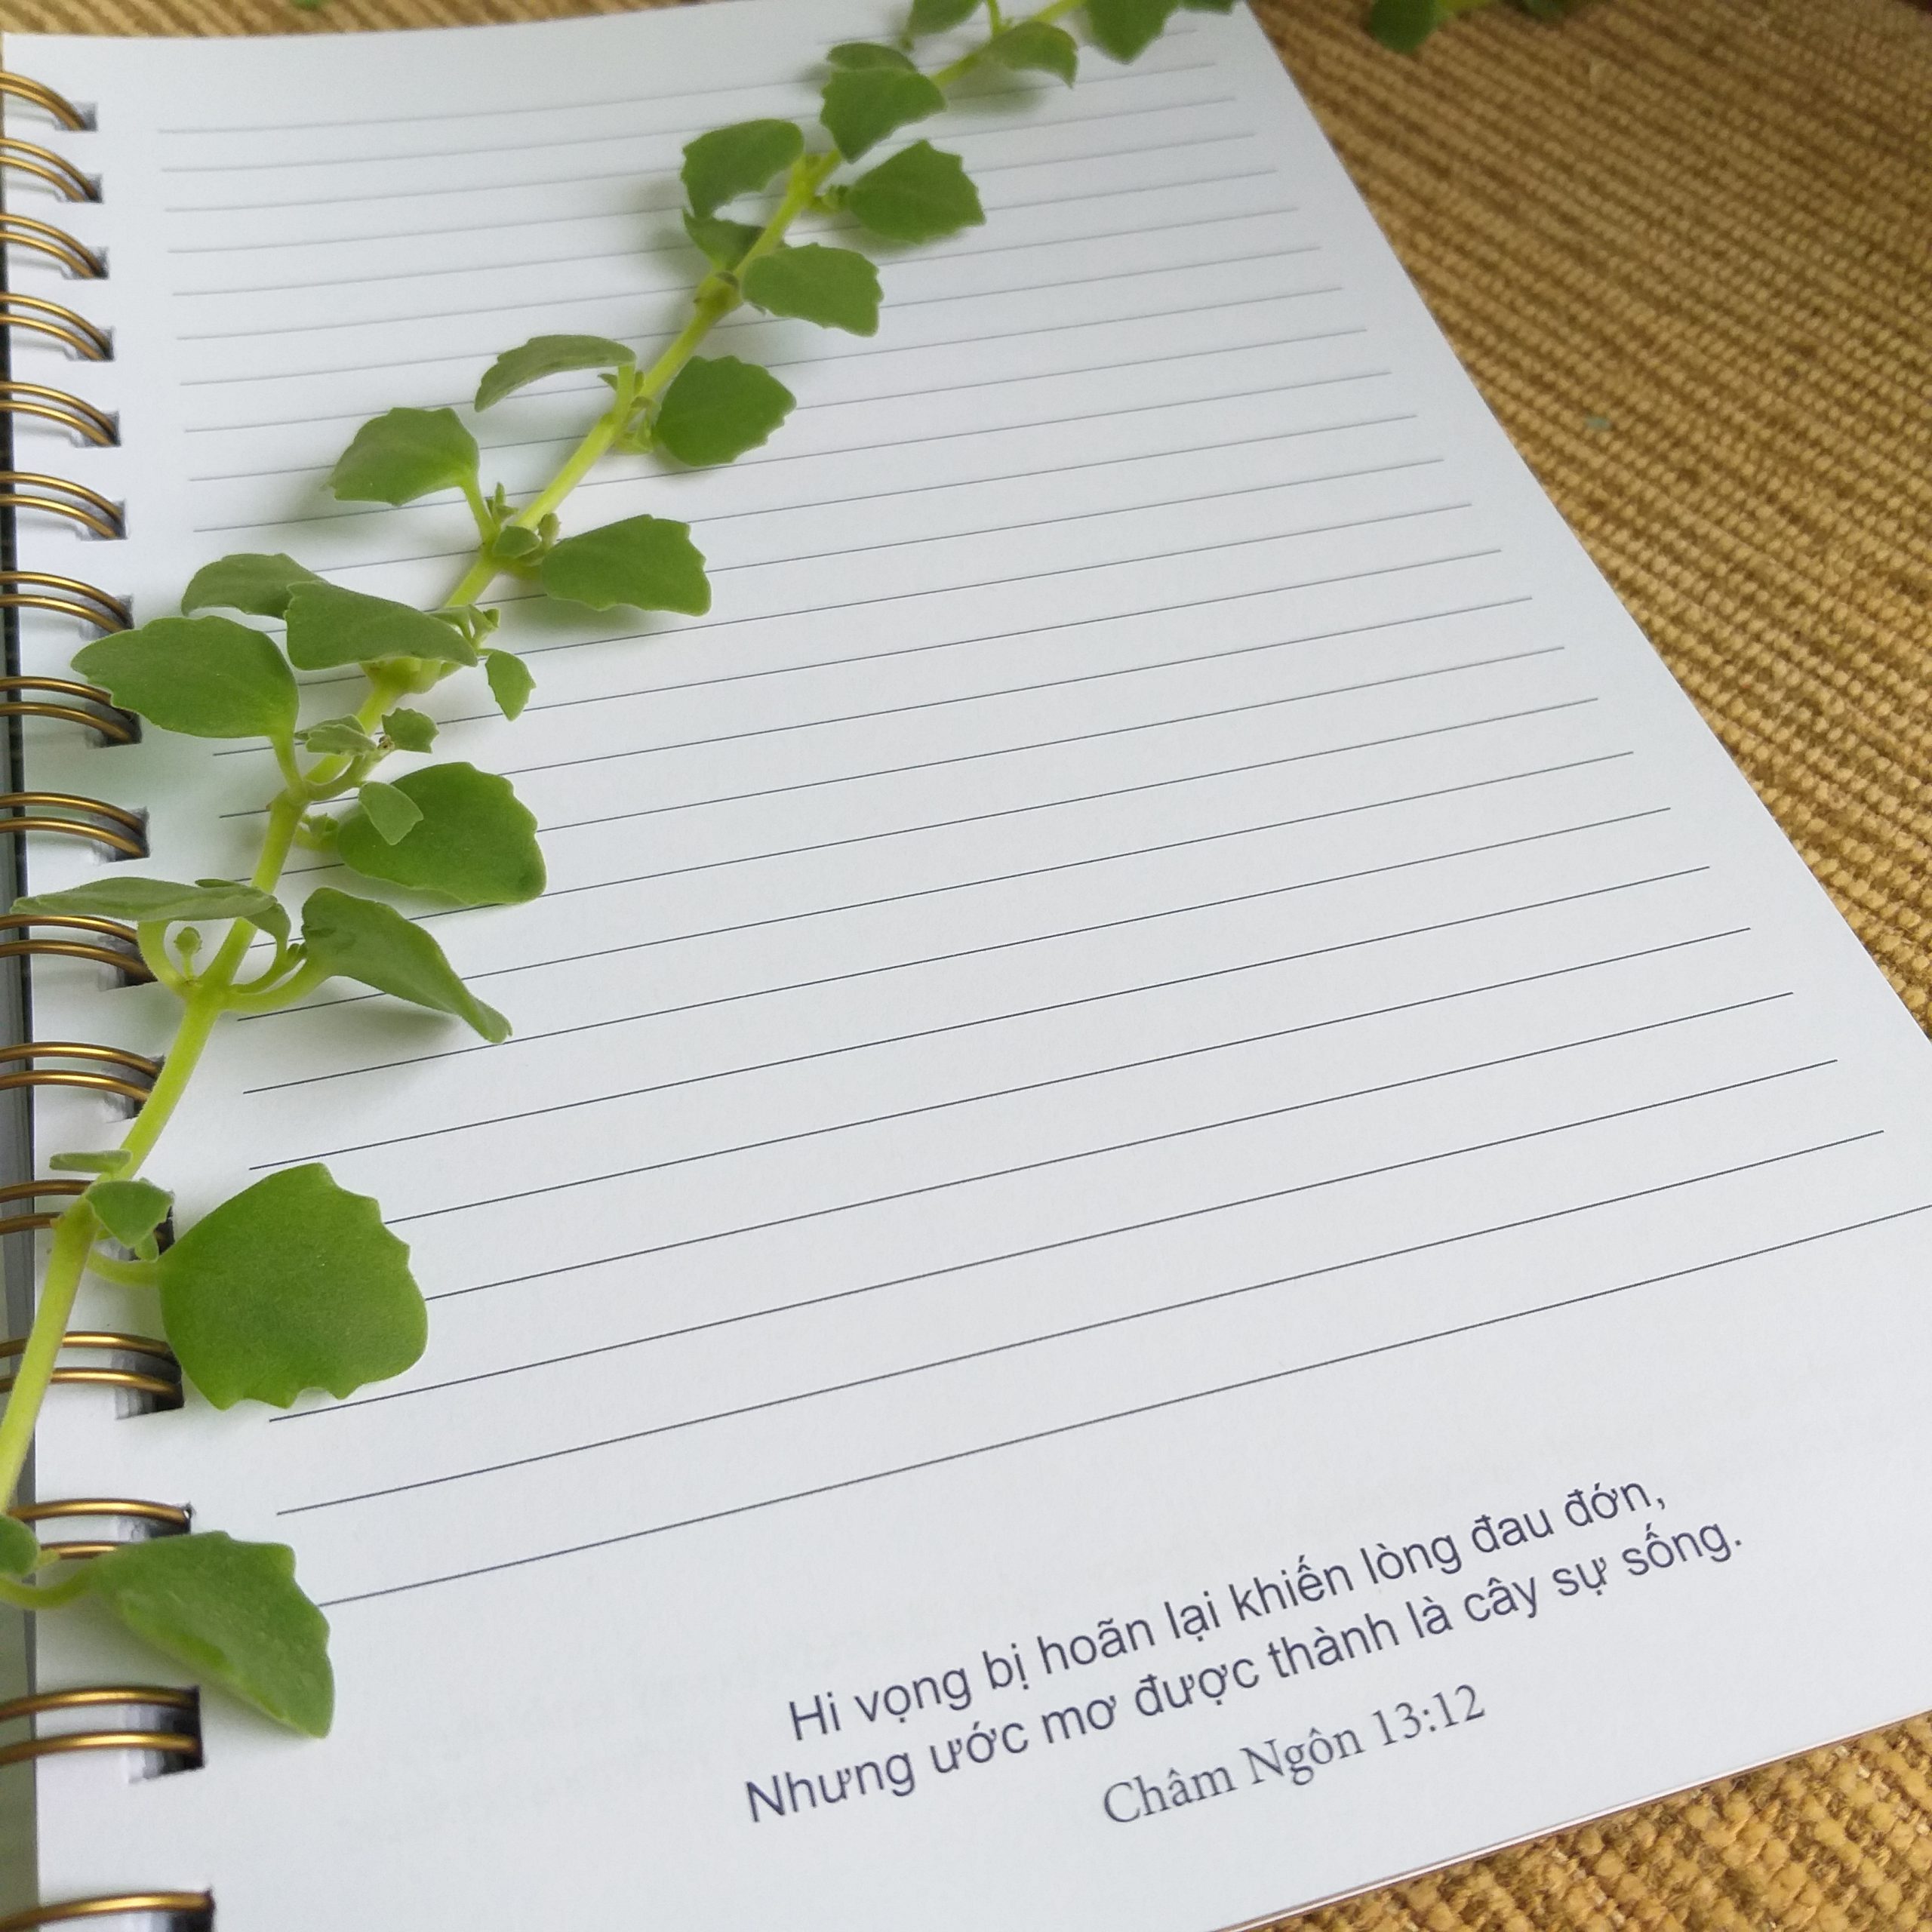 Hi vọng bị hoãn lại khiến lòng đau đớn,
Nhưng ước mơ được thành là cây sự sống.
Châm Ngôn 13:12